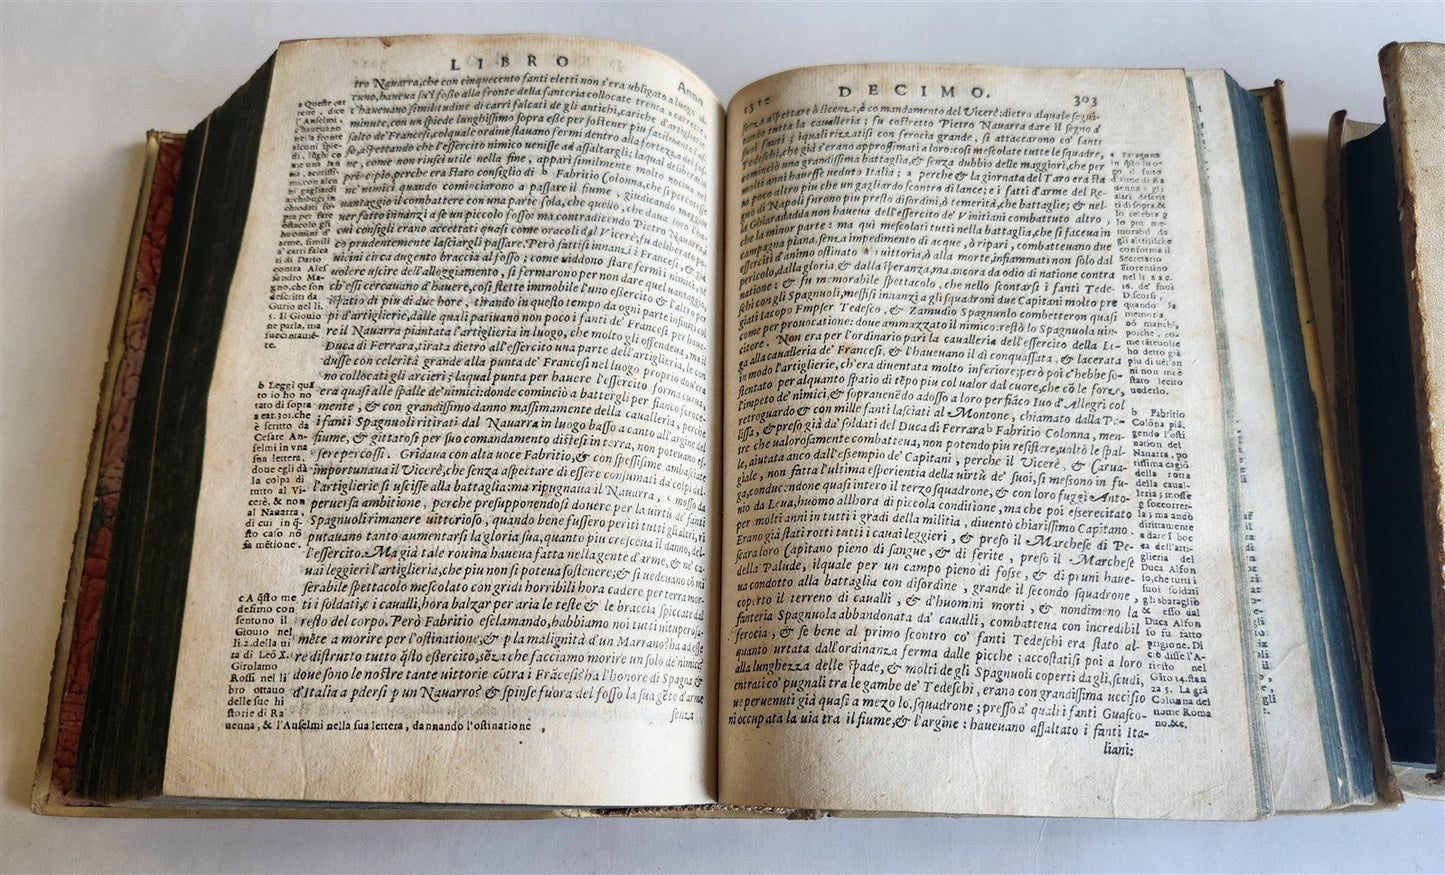 LIBRO
Anno
tro Nauarra, che con cinquecento fanti eletti non s'era ubligato a luogo al-
cuno, haueua su'l fosso alla fronte della fanteria collocate trenta carrette, c'
c'haueuano similitudine di carri falcati de gli antichi, cariche d'artiglierie
minute, con un spiede lunghissimo sopra esse per sostener piu facilmente l'as-
salto de' Francesi, colquale ordine stauano fermi dentro alla fortezza del fos-
so, aspettando che l'essercito nimico uenisse ad assaltargli; laqual deliberatio
ne, come non riuscì utile nella fine, apparì similmente molto nociua nel
principio, perche era stato consiglio di b Fabritio Colonna, che si percotesse
ne' nimici quando cominciarono a passare il fiume, giudicando maggior
uantaggio il combattere con una parte sola, che quello, che daua loro l'ha
uer fatto innanzi a se un piccolo fosso: ma contradicendo Pietro Nauarra, i
cui consigli erano accettati quasi come oracoli dal Vicerè, fu deliberato po
co prudentemente lasciargli passare. Però fattisi innanzi i Francesi, & già
uicini circa dugento braccia al fosso; come uiddono stare fermi i nimici, nè
uolere uscire dell'alloggiamento, si fermarono per non dare quel uantaggio,
ch'essi cercauano d'hauere, così stette immobile l'uno essercito & l'altro per
ispatio di piu di due hore, tirando in questo tempo da ogni parte infiniti col
pi d'artiglierie, dalle quali patiuano non poco i fanti de' Francesi per haue-
re il Nauarra piantata l'artiglieria in luogo, che molto gli offendeua, ma il
Duca di Ferrara, tirata dietro all'essercito una parte dell'artiglierie, le con
dusse con celerità grande alla punta de' Francesi nel luogo proprio dou'era
no collocati gli arcieri; laqual punta per hauere l'essercito forma curua,
era quasi alle spalle de' nimici: donde cominciò a battergli per fianco feroce-
mente, & con grandissimo danno massimamente della caualleria, perche
i fanti Spagnuoli ritirati dal Nauarra in luogo basso a canto all'argine del
fiume, & gittatosi per suo comandamento distesi in terra, non poteuano es-
ser percossi. Gridaua con alta uoce Fabritio, & con spessissime ambasciate
importunaua il Vicerè, che senza aspettare di essere consumati da colpi del-
l'artiglierie si uscisse alla battaglia: ma ripugnaua il Nauarra, mosso da
peruersa ambitione, perche presupponendosi douere per la uirtù de' fanti
Spagnuoli rimanere uittorioso, quando bene fussero periti tutti gli altri, ri
putauano tanto aumentarsi la gloria sua, quanto piu cresceua il danno, del-
l'essercito. Ma già tale rouina haueua fatta nella gente d'arme, & ne' ca-
uai leggieri l'artiglieria, che piu non si poteua sostenere; & si uedeuano cō mi
serabile spettacolo mescolato con gridi horribili hora cadere per terra mor-
ti i soldati, e i caualli, hora balzar per aria le teste & le braccia spiccate dal
resto del corpo. Però Fabritio esclamando, habbiamo noi tutti uituperosa-
mēte a morire per l'ostinatione, & p la malignità d'un Marrano? ha ad esse
re distrutto tutto q̄sto essercito, sēza che facciamo morire un solo de' nimici?
doue sono le nostre tante uittorie cōtra i Frācesi? ha l'honore di Spagna &
d'Italia a pdersi p un Nauarro? & spinse fuora del fosso la sua gēte d'arme
senza
a Queste car
rette, dice
l'Anselmi,
c'haueuano
nella fronte
alcuni spie-
di, lūghi co
me una lan
za, acutissi-
mi, con alcu
ni gagliardi
archibugi in
chiodati so-
pra per fare
ostacolo gli
huomini d'
arme, simili
a' carri falca
ti di Dario
contra Ales
sandro Ma-
gno, che son
descritti da
Curtio nel li.
5. Il Giouio
ne parla, ma
succintamē-
te.
b Leggi quā
to io ho no
tato di sopra
a car. 301. che
è scritto da
Cesare An-
selmi in vna
sua lettera,
doue egli dà
la colpa di
tutto al Vi-
cerè, & non
al Nauarra,
di cui in q̄-
sto caso nō
fa mētione.
c A q̄sto me
desimo con
sentono il
Giouio nel
li. 2. della ui
ta di Leō X.
Girolamo
Rossi nel li
bro ottauo
delle sue hi
storie di Ra
uenna, & l'Anselmi nella sua lettera, dannando l'ostinatione,
1512
DECIMO.
303
senza aspettare ò licenza, ò comandamento del Vicerè: dietro alquale segui-
tando tutta la caualleria; fu costretto Pietro Nauarra dare il segno a'
suoi fanti; iquali rizzatisi con ferocia grande, si attaccarono co' fanti
Tedeschi, che già s'erano approssimati a loro: così mescolate tutte le squadre,
cominciò una grandissima battaglia, & senza dubbio delle maggiori, che per
molti anni hauesse ueduto Italia; a perche & la giornata del Taro era sta
ta poco altro piu che un gagliardo scontro di lance; e i fatti d'arme del Re-
gno di Napoli furono piu presto disordini, ò temerità, che battaglie; & nel-
la Ghiaradadda non haueua dell'essercito de' Vinitiani combattuto altro,
che la minor parte: ma quì mescolati tutti nella battaglia, che si faceua in
campagna piana, senza impedimento di acque, ò ripari, combatteuano due
esserciti d'animo ostinato a uittoria, ò alla morte, infiammati non solo dal
pericolo, dalla gloria & dalla speranza, ma ancora da odio di natione contra
natione: & fu memorabile spettacolo, che nello scontrarsi i fanti Tede-
schi con gli Spagnuoli, messisi innanzi a gli squadroni due Capitani molto pre
giati Iacopo Empser Tedesco, & Zamudio Spagnuolo combetteron quasi
come per prouocatione: doue ammazzato il nimico: restò lo Spagnuolo uin-
citore. Non era per l'ordinario pari la caualleria dell'essercito della Li-
ga alla caualleria de' Francesi, & l'haueuano il dì conquassata, & lacerata
in modo l'artiglierie, ch'era diuentata molto inferiore; però poi c'hebbe so-
stentato per alquanto spatio di tēpo piu col ualor dal cuore, che cō le forze,
l'impeto de' nimici, & soprauenēdo adosso a loro per fiāco Iuo d'Allegri col
retroguardo & con mille fanti lasciati al Montone, chiamato dalla Pa-
lissa, & preso già da' soldati del Duca di Ferrara b Fabritio Colonna, men-
tre che ualorosamente combatteua, non potendo piu resistere, uoltò le spal-
le, aiutata anco dall'essempio de' Capitani, perche il Vicerè, & Carua-
giale, non fatta l'ultima esperientia della uirtù de' suoi, si messono in fu-
ga, conducendone quasi intero il terzo squadrone, & con loro fuggì Anto-
nio da Leua, huomo allhora di piccola conditione, ma che poi essercitato
per molti anni in tutti i gradi della militia, diuentò chiarissimo Capitano.
Erano già stati rotti tutti i cauai leggieri, & preso il Marchese di Pe-
scara loro Capitano pieno di sangue, & di ferite, preso il Marchese
della Palude, ilquale per un campo pieno di fosse, & di pruni haue-
ua condotto alla battaglia con disordine, grande il secondo squadrone,
coperto il terreno di caualli, & d'huomini morti, & nondimeno la
fanteria Spagnuola abbandonata da' caualli, combatteua con incredibil
ferocia, & se bene al primo scontro co' fanti Tedeschi era stato al-
quanto urtata dall'ordinanza ferma dalle picche; accostatisi poi a loro
alla lunghezza delle spade, & molti de gli Spagnuoli coperti da gli scudi,
entrati co' pugnali tra le gambe de' Tedeschi, erano con grandissima uccisio
ne peruenuti già quasi a mezo lo squadrone; presso a' quali i fanti Guasco-
ni occupata la uia tra il fiume, & l'argine: haueuano assaltato i fanti Ita-
liani:
a Paragona
in q̄sto luo-
go il fatto
d'arme di Ra
uenna a gli
altri descrit
ti di sopra, &
lo celebra p
lo piu me-
morabil da
gli altri, ilche
conferma il
Secretario
Fiorentino
nel li 2 a c.
16. de' suoi
Discorsi,
quando la
memoria
nō manchi,
poiche, co-
me tāte uolte
ho detto già
piu di uēt'an
ni non mi è
stato lecito
uederlo.
b Fabritio
Colōna pia-
gendo l'osti
nation del
Nauarra, po
tissima cagiō
della rotta
della caual-
leria; mosse
p soccorrer-
la; ma andò
dirittamente
a dare ī boc
ca dell'arti-
glieria del
Duca Alfon
so, che tutti i
suoi soldati
gli sbaraglio
& esso dal
Duca Alfon
so fu fatto
prigione. Di
ciò disse l'A-
riosto nel
Cāto 14. stan
za 5. La grā
Colonna del
nome Roma
no. &c.